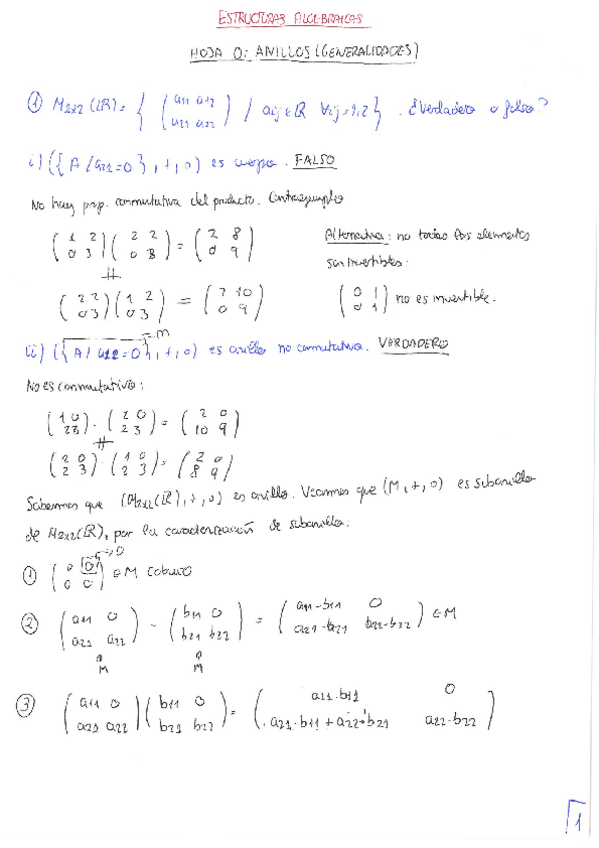 ESTRUCTURAS ALGEBRAICAS
HOJA 0: ANILLOS (GENERALIDADES)
① M2x2(ℝ) = { (a11 a12 / a21 a22) / aij ∈ ℝ ∀i,j=1,2 } . ¿Verdadero o falso?
i) ({A / a21=0}, +, ·) es cuerpo. FALSO
No hay prop. conmutativa del producto. Contraejemplo
(1 2 / 0 3) (2 2 / 0 3) = (2 8 / 0 9)
≠
(2 2 / 0 3) (1 2 / 0 3) = (2 10 / 0 9)
Alternativa: no todos los elementos
son invertibles.
(0 1 / 0 1) no es invertible.
= M
ii) ({A / a12=0}, +, ·) es anillo no conmutativo. VERDADERO
No es conmutativo:
(1 0 / 2 3) · (2 0 / 2 3) = (2 0 / 10 9)
≠
(2 0 / 2 3) (1 0 / 2 3) = (2 0 / 8 9)
Sabemos que (M2x2(ℝ), +, ·) es anillo. Veamos que (M, +, ·) es subanillo
de M2x2(ℝ), por la caracterización de subanillo:
① (0 0 / 0 0) ∈ M → 0
② (a11 0 / a21 a22) - (b11 0 / b21 b22) = (a11-b11 0 / a21-b21 a22-b22) ∈ M
M M
③ (a11 0 / a21 a22) (b11 0 / b21 b22) = (a11·b11 0 / a21·b11 + a22·b21 a22·b22)
1